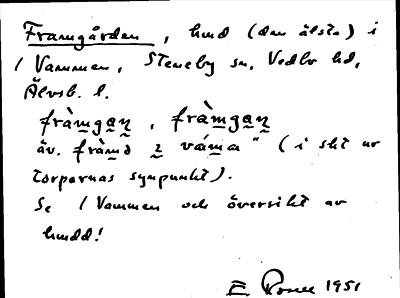 Framgården, hmd (den älsta) i
/ Vammen, Steneby sn, Vedbo hd,
Älvsb. l.
fràmgaṇ, fràmgaṇ
äv. fràmə i váma" (i sht ur
torparnas synpunkt).
Se / Vammen och översikt av
hmdd!
E 1951